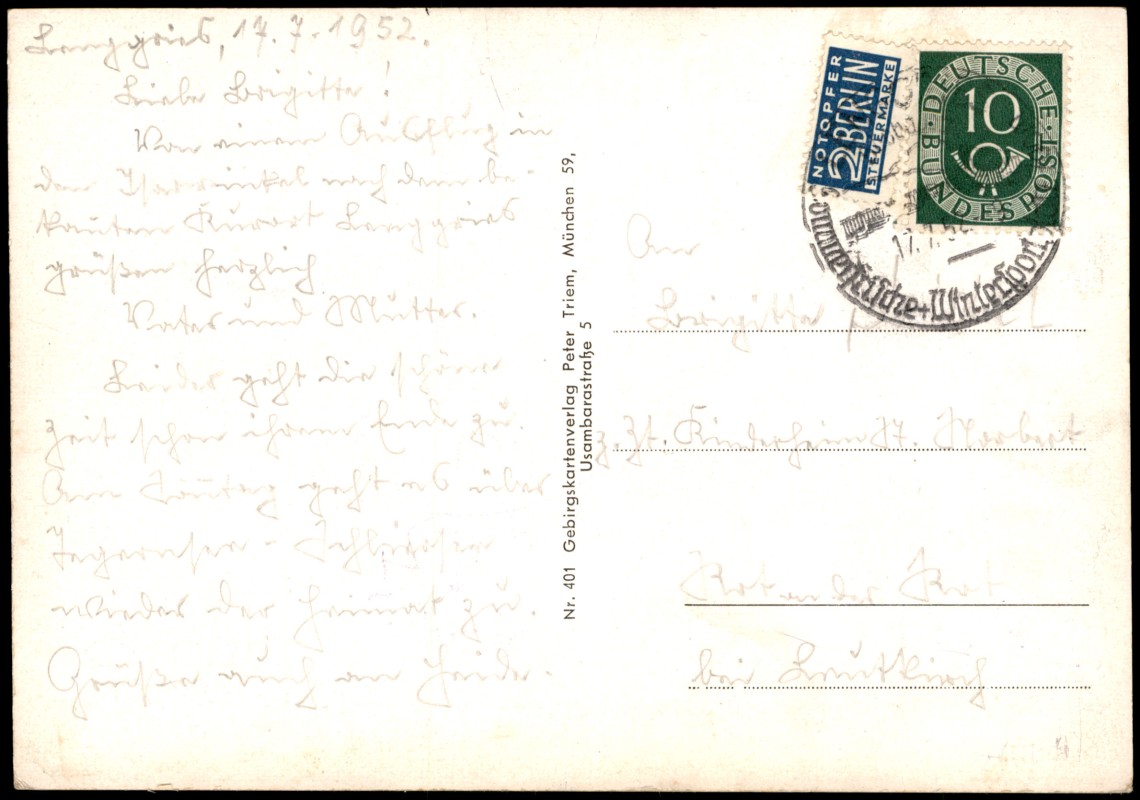 Lenggries, 17.7.1952.
Liebe Brigitte!
Von einem Ausflug in
den Isarwinkel nach dem be-
kannten Kurort Lenggries
grüßen herzlich
Vater und Mutter.
Leider geht die schöne
Zeit schon ihrem Ende zu.
Am Sonntag geht es über
Tegernsee - Schliersee
wieder der Heimat zu.
Grüße auch an Heide.
Nr. 401 Gebirgskartenverlag Peter Triem, München 59,
Usambarastraße 5
NOTOPFER
2 BERLIN
STEUERMARKE
DEUTSCHE BUNDESPOST
10
17.7.52
Sommerfrische + Wintersport
An
Brigitte
z. Zt. Kinderheim St. Norbert
Rot an der Rot
bei Leutkirch